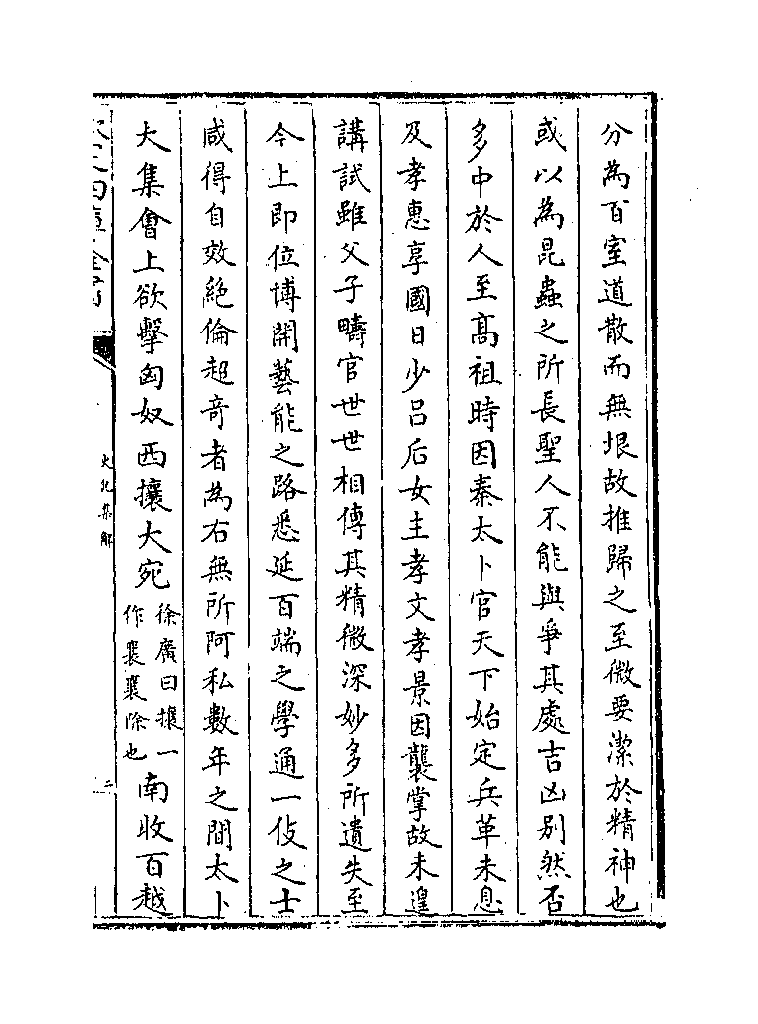 分為百室道散而無垠故推歸之至微要潔於精神也
或以為昆蟲之所長聖人不能與爭其處吉凶别然否
多中於人至髙祖時因秦太卜官天下始定兵革未息
及孝惠享國日少吕后女主孝文孝景因襲掌故未遑
講試雖父子疇官世世相傳其精微深妙多所遺失至
今上即位博開藝能之路悉延百端之學通一伎之士
咸得自效絶倫超竒者為右無所阿私數年之間太卜
大集會上欲擊匈奴西攘大宛徐廣曰攘一作襄襄除也南收百越
史記集解
二